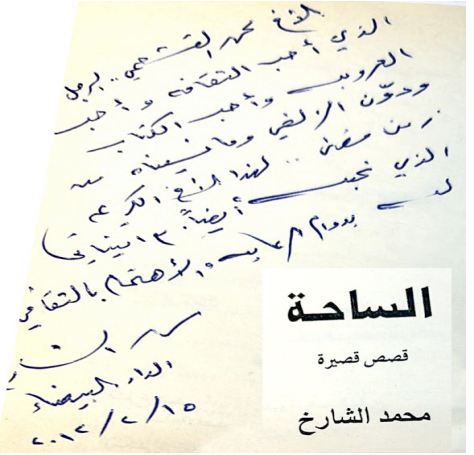 للأخ محمد القشعمي .. الرجل
الذي أحب الثقافة وأحب
العروبة وأحب الكتاب
ودوّن الماضي وما نسيناه من
زمن مضى .. لهذا الأخ الكريم
الذي نحبه أيضاً. أمنياتي
له بدوام الرعاية والأهتمام بالثقافة
محمد الشارخ
الدار البيضاء
٢٠١٢/٢/١٥
الساحة
قصص قصيرة
محمد الشارخ